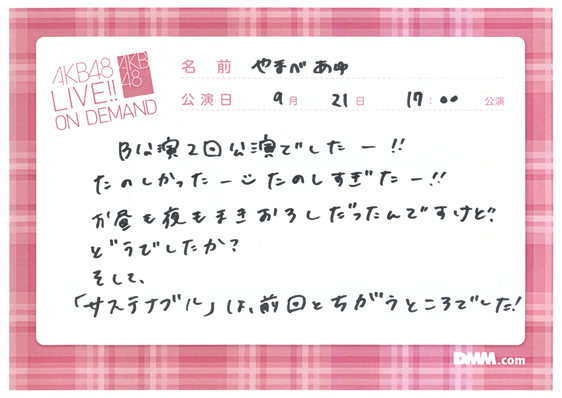 AKB48
LIVE!!
ON DEMAND
AKB
48
名 前 やまべあゆ
公演日 9月 21日 17:00 公演
B公演2回公演でしたー!!
たのしかったー たのしすぎたー!!
お昼も夜もまきおろしだったんですけど?
どうでしたか?
そして、
「サステナブル」は、前回とちがうところでした!
DMM.com